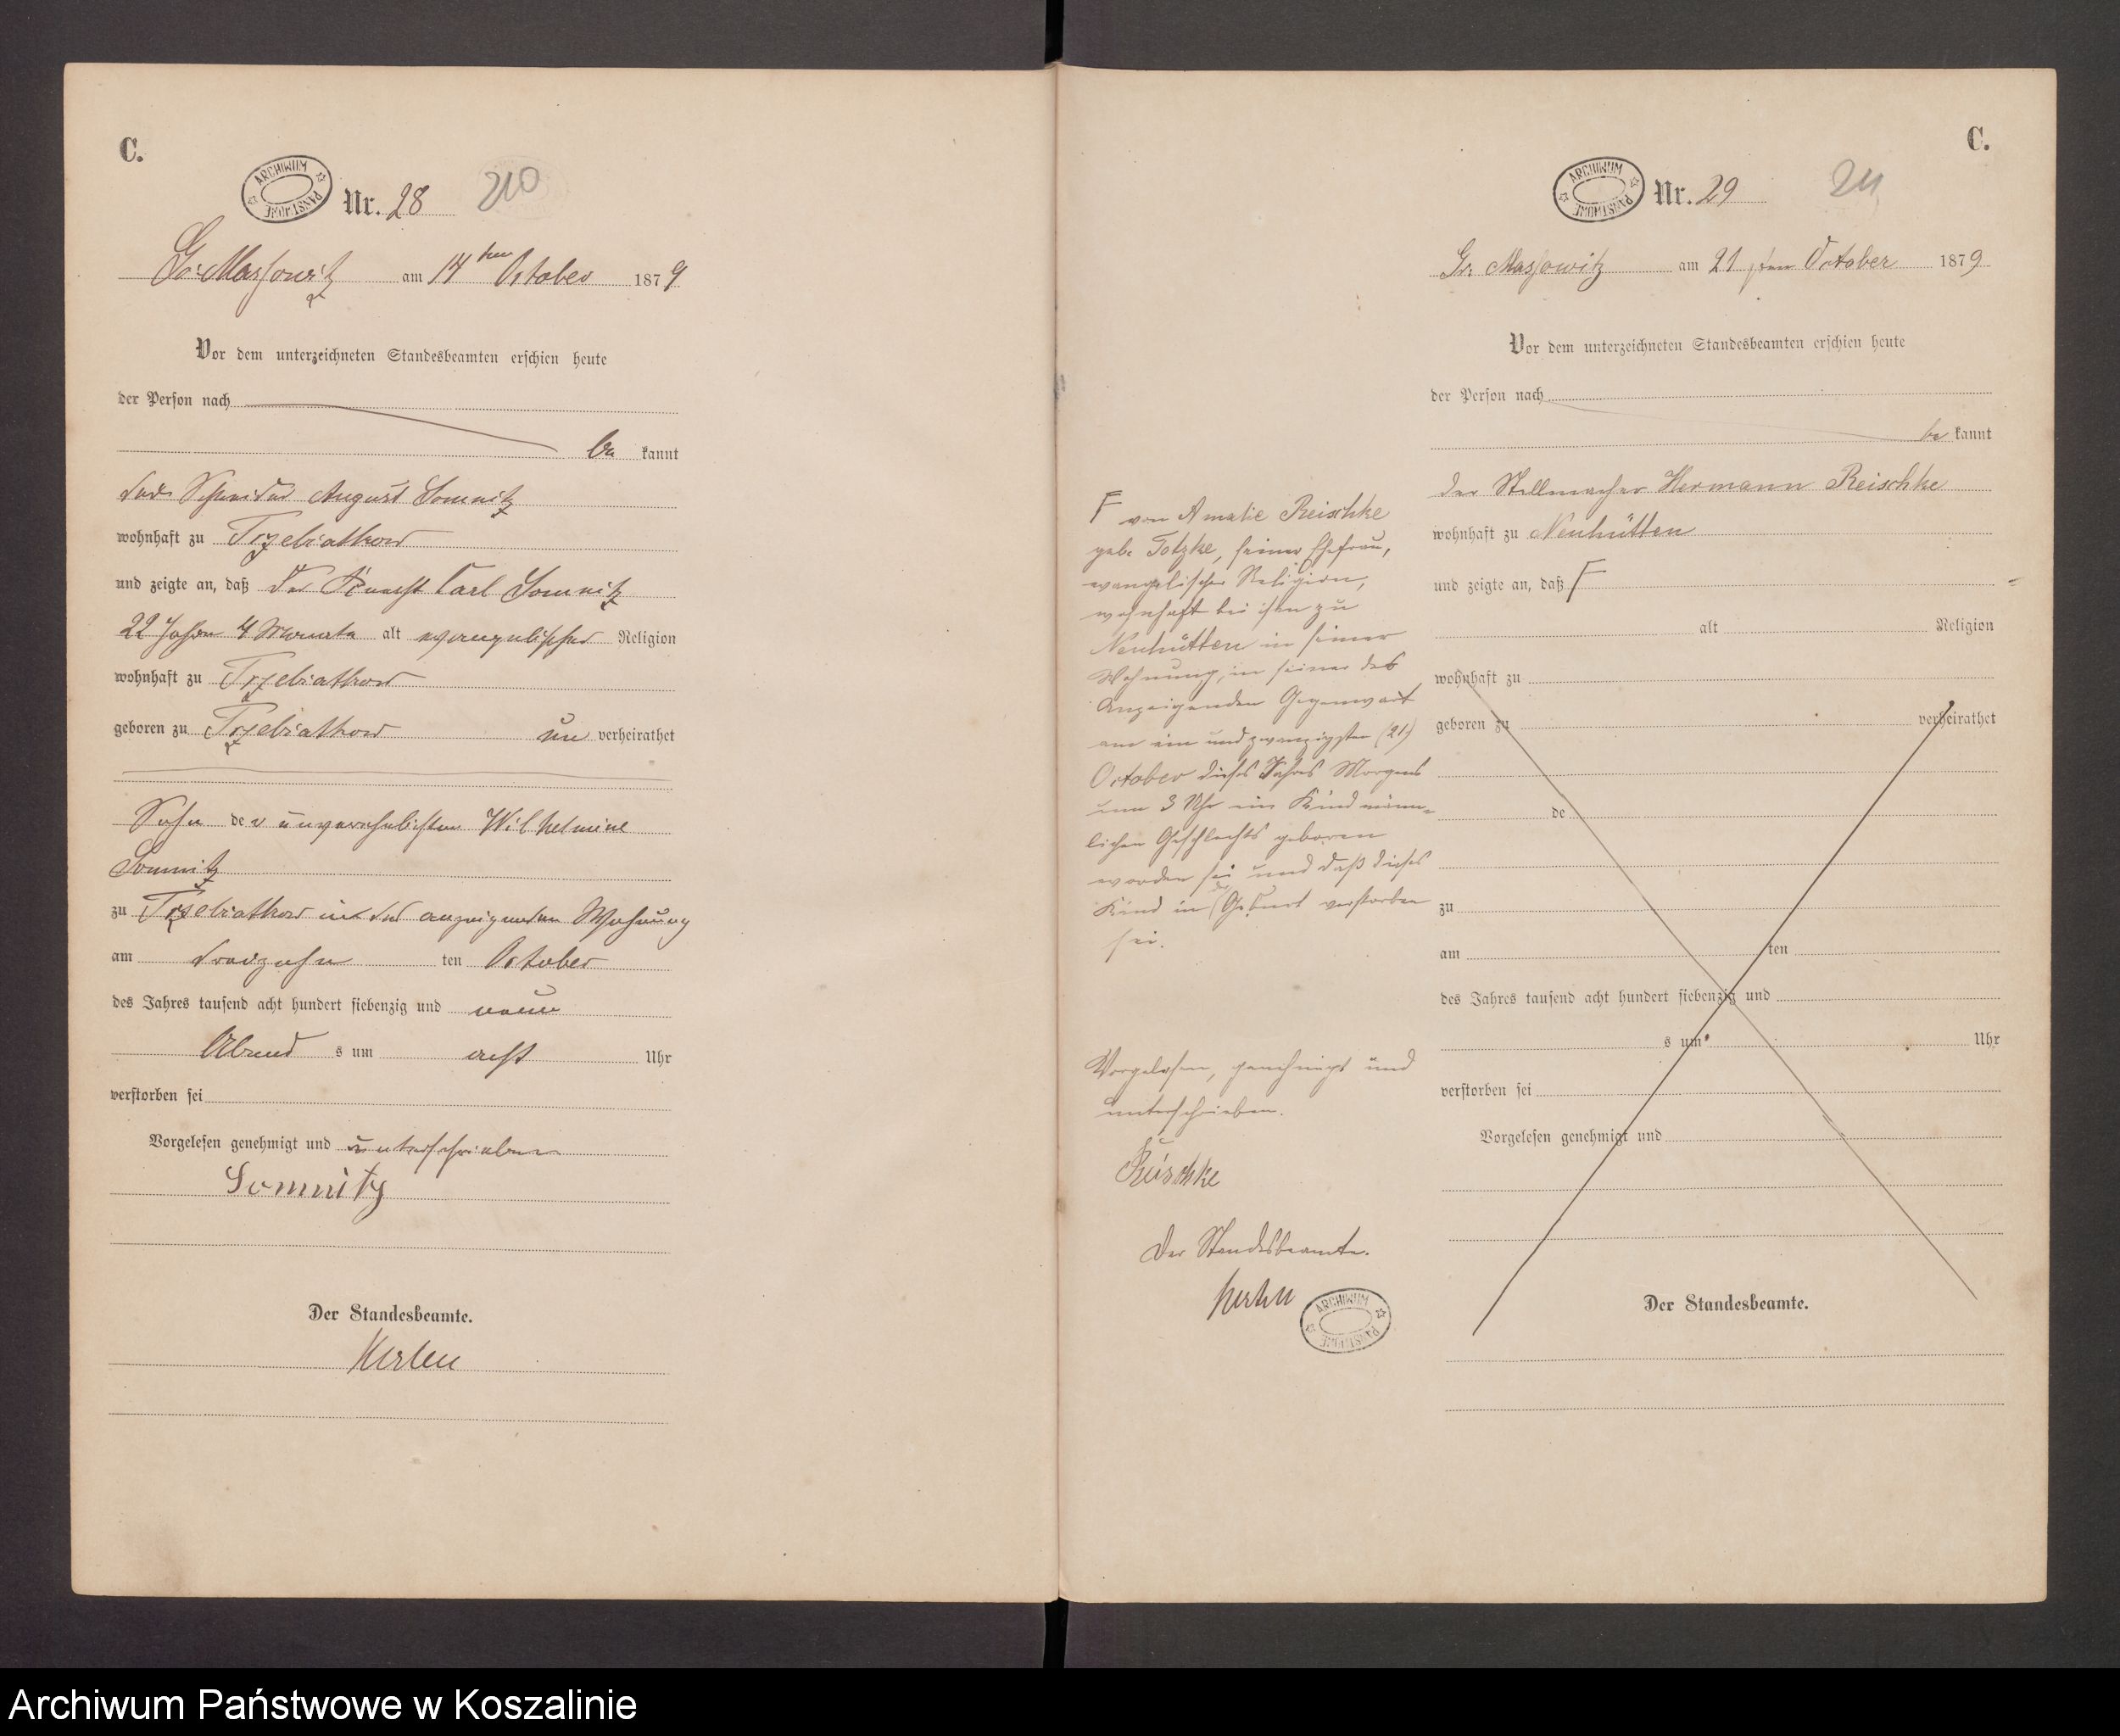 C.
ARCHIWUM PAŃSTWOWE
Nr. 28 210
Gr: Massowitz am 14ten October 1879
Vor dem unterzeichneten Standesbeamten erschien heute
der Person nach
be kannt
der Schneider August Somnitz
wohnhaft zu Trzebiatkow
und zeigte an, daß der Knecht Carl Somnitz
22 Jahre 4 Monate alt evangelischer Religion
wohnhaft zu Trzebiatkow
geboren zu Trzebiatkow un verheirathet
Sohn der unverehelichten Wilhelmine
Somnitz
zu Trzebiatkow in der anzeigenden Wohnung
am dreizehn ten October
des Jahres tausend acht hundert siebenzig und neun
Abend s um acht Uhr
verstorben sei
Vorgelesen genehmigt und unterschrieben
Somnitz
Der Standesbeamte.
C.
ARCHIWUM PAŃSTWOWE
Nr. 29 211
Gr. Massowitz am 21 sten October 1879
Vor dem unterzeichneten Standesbeamten erschien heute
der Person nach
be kannt
der Stellmacher Hermann Reischke
wohnhaft zu Neuhütten
und zeigte an, daß F
alt Religion
wohnhaft zu
geboren zu verheirathet
de
zu
am ten
des Jahres tausend acht hundert siebenzig und
s um Uhr
verstorben sei
Vorgelesen genehmigt und
Der Standesbeamte.
F von Amalie Reischke
geb. Totzke, seiner Ehefrau,
evangelischer Religion,
wohnhaft bei ihm zu
Neuhütten in seiner
Wohnung, in seiner des
Anzeigenden Gegenwart
am ein und zwanzigsten (21.)
October dieses Jahres Morgens
um 3 Uhr ein Kind männ=
lichen Geschlechts geboren
worden sei und daß dieses
Kind in der Geburt verstorben
sei.
Vorgelesen, genehmigt und
unterschrieben.
Reischke
Der Standesbeamte.
ARCHIWUM PAŃSTWOWE
Archiwum Państwowe w Koszalinie